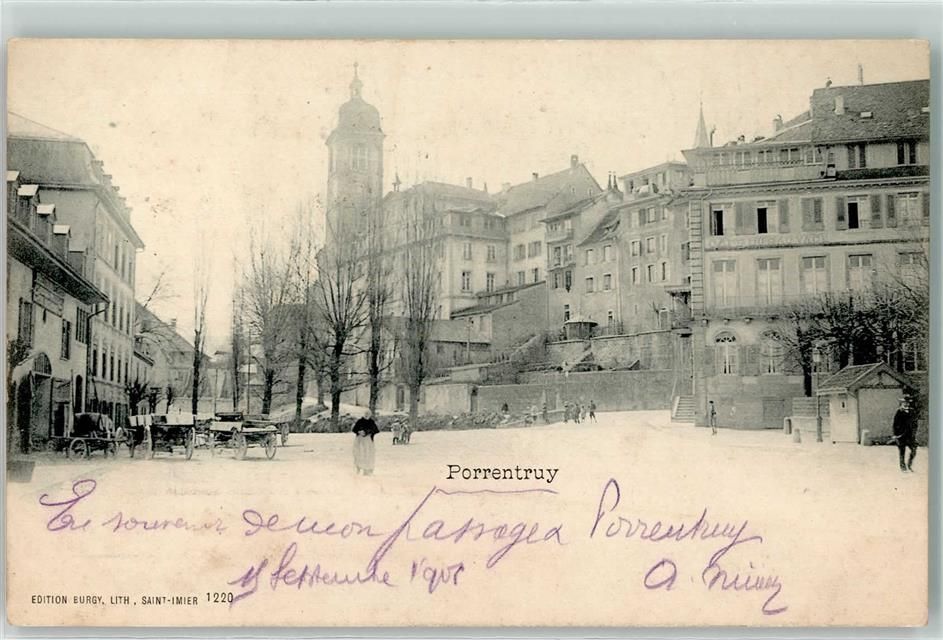 Porrentruy
En souvenir de mon passage à Porrentruy
15 Septembre
A.
EDITION BURGY, LITH, SAINT-IMIER 1220